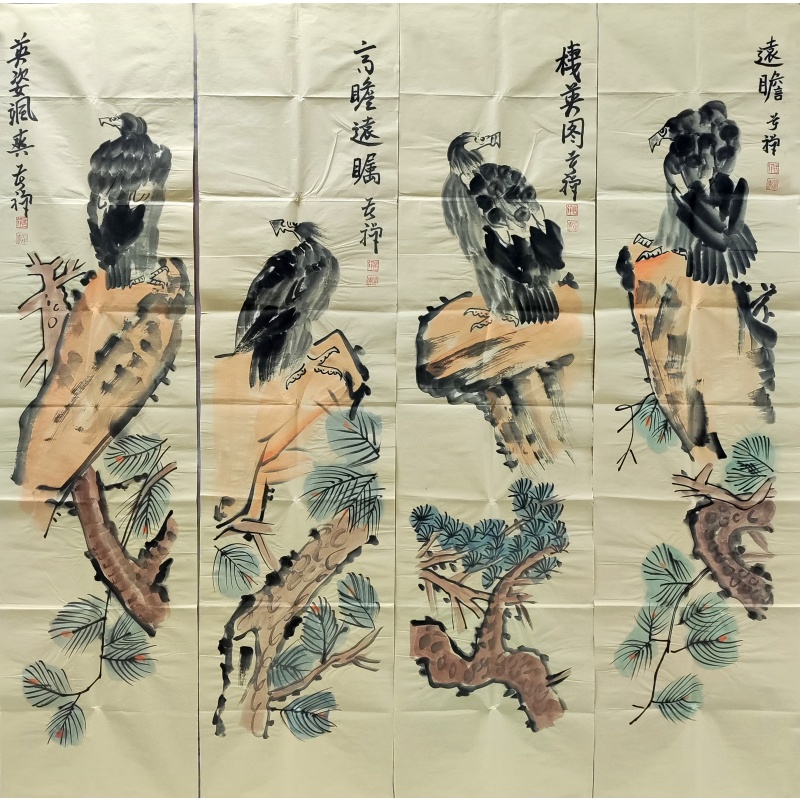 遠瞻 苦禅
棲英图 苦禅
高瞻遠瞩 苦禅
英姿飒爽 苦禅